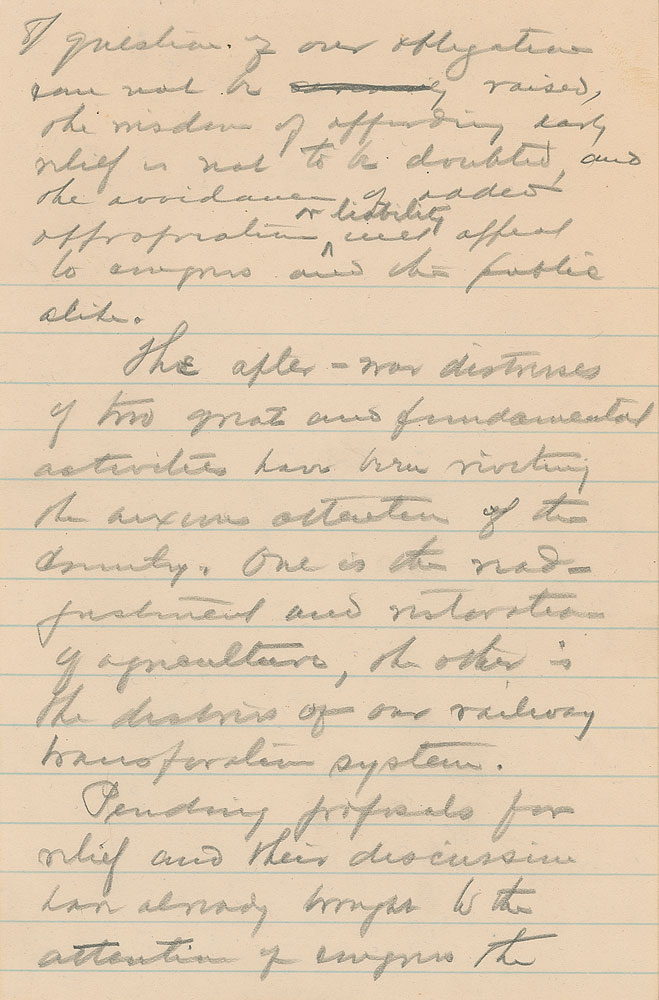 question of our obligation
can not be raised,
the wisdom of affording early
relief is not to be doubted, and
the avoidance of added
or liability
appropriation will appeal
to congress and the public
alike.
The after-war distresses
of two great and fundamental
activities have been riveting
the anxious attention of the
country. One is the read-
justment and restoration
of agriculture, the other is
the distress of our railway
transportation system.
Pending proposals for
relief and their discussion
have already brought to the
attention of congress the